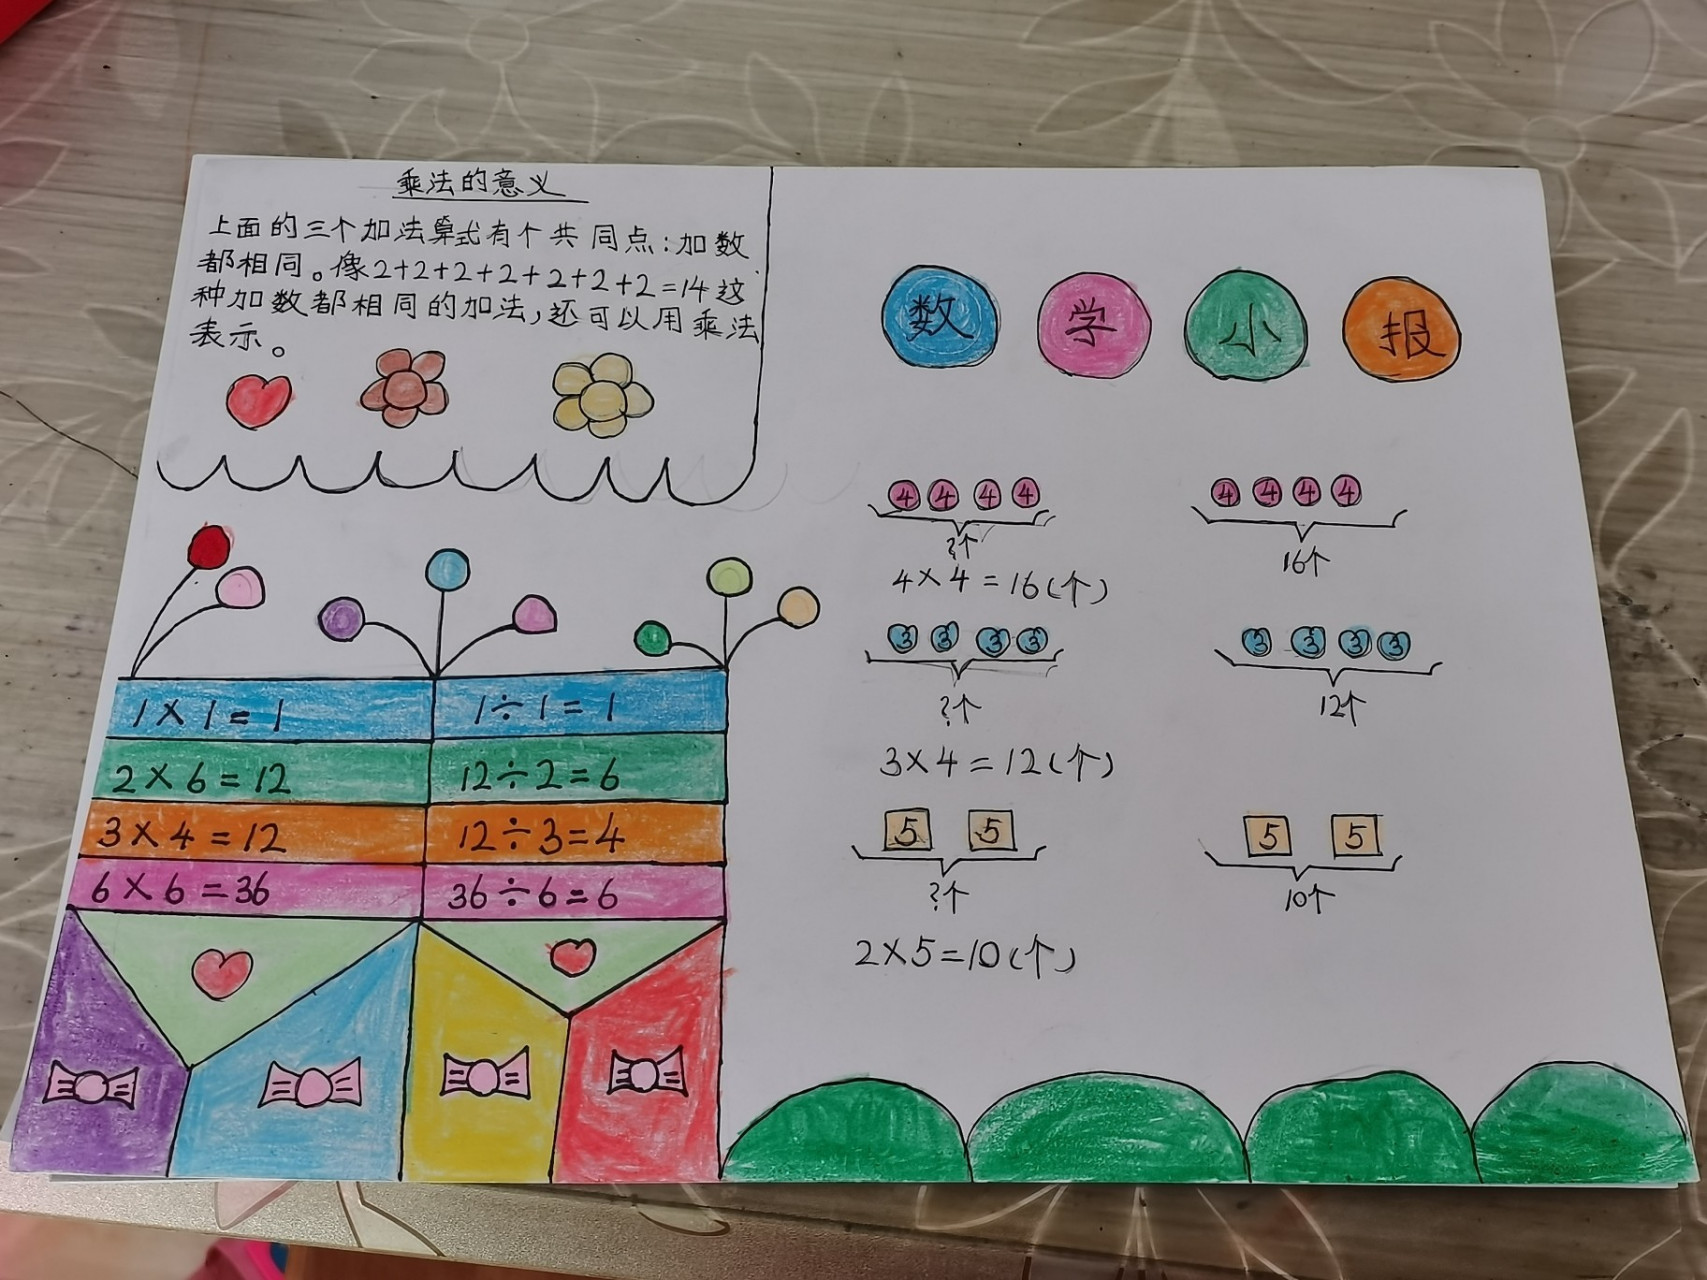 乘法的意义
上面的三个加法算式有个共同点:加数
都相同。像2+2+2+2+2+2+2=14这
种加数都相同的加法,还可以用乘法
表示。
数学小报
4 4 4 4
?个
4×4=16(个)
4 4 4 4
16个
3 3 3 3
?个
3×4=12(个)
3 3 3 3
12个
5 5
?个
2×5=10(个)
5 5
10个
1×1=1
1÷1=1
2×6=12
12÷2=6
3×4=12
12÷3=4
6×6=36
36÷6=6